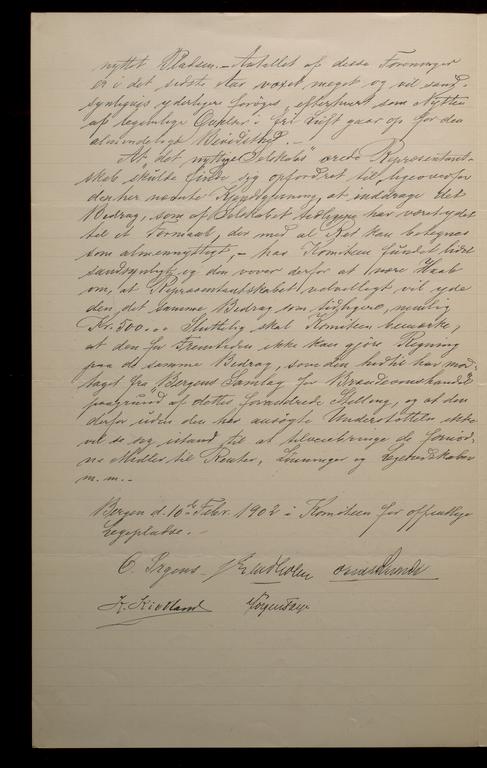 nyttet Pladsen. - Antallet af disse Foreninger
er i det sidste Aar voxet meget og vil sand-
synligvis yderligere forøges, efterhvert som Nytten
af legemlige Øvelser i fri Luft gaar op for den
almindelige Bevidsthed. -
At "det nyttige Selskabs" ærede Repræsentant-
skab skulde finde sig opfordret til ligeoverfor
denne Komite, at inddrage det
Bedrag, som af Selskabet tidligere har været ydet
til et Formaal, der med al Ret kan betegnes
som almennyttigt, - har Komiteen fundet lidet
sandsynligt og den vover derfor at nære Haab
om, at Repræsentantskabet velvilligst vil yde
den det samme Bedrag som tidligere, nemlig
Kr. 500.00. Sluttelig skal Komiteen bemærke,
at den for Fremtiden ikke kan gjøre Regning
paa det samme Bedrag, som den hidtil har mod-
taget fra "Bergens Samlag for Brændevinshandel"
paagrund af dettes forandrede Stilling, og at den
derfor uden den her ansøgte Understøttelse ikke
vil se sig istand til at tilveiebringe de fornød-
ne Midler til Renter, Lønninger og Legeredskaber
m. m. -
Bergen d. 10de Febr. 1902 i Komiteen for offentlige
Legepladse. -
O. Irgens J. Lindholm
K. Kielland